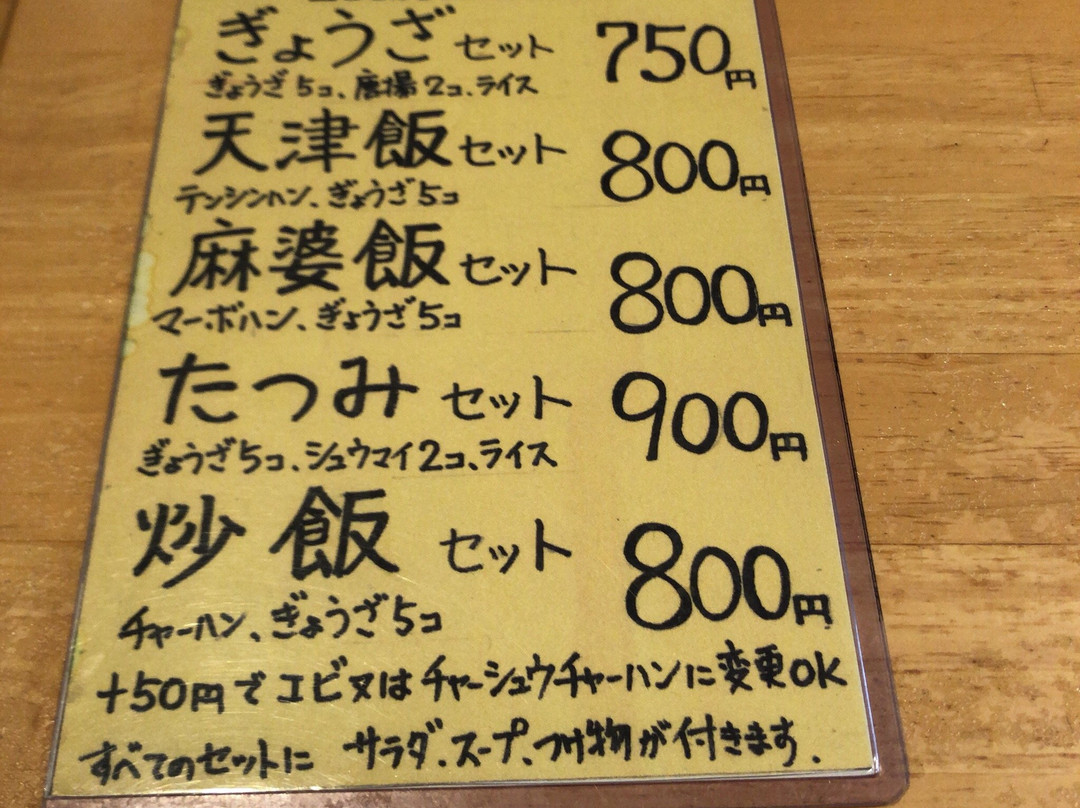 ぎょうざセット 750円
ぎょうざ5コ、唐揚2コ、ライス
天津飯セット 800円
テンシンハン、ぎょうざ5コ
麻婆飯セット 800円
マーボハン、ぎょうざ5コ
たつみセット 900円
ぎょうざ5コ、シュウマイ2コ、ライス
炒飯セット 800円
チャーハン、ぎょうざ5コ
+50円でエビ又はチャーシュウチャーハンに変更OK
すべてのセットに サラダ、スープ、つけ物が付きます.